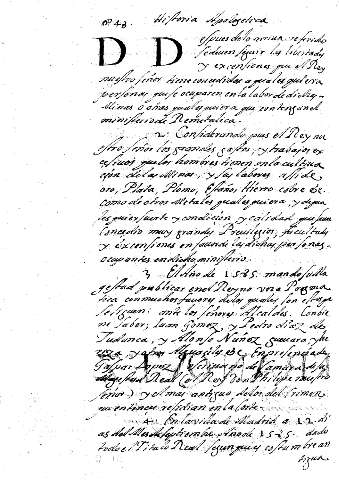 nº 48. Historia Apologetica
D D espues de lo arriua referido
se deuen seguir las libertades
y excensiones que el Rey
nuestro señor tiene concedidas a qualesquiera
personas que se ocuparen en la labor de dichas
Minas o otras qualesquiera que contengan el
ministerio de
2 Considerando pues el Rey nu
estro señor los grandes gastos, y trabajos ex
cesiuos que los hombres tienen en la cultiua
cion de las Minas, y sus labores assi de
oro, Plata, Plomo, Estaño, Hierro cobre &c.
como de otros Metales qualesquiera, y de qua
lesquier suerte y condicion y calidad que sean
Concedio muy grandes Preuilegios, facultades
y excensiones en fauor de las dichas personas
ocupantes en dicho ministerio.
3 El Año de 1525 mando su Ma
gestad publicar en el Reyno una Pragma
tica con muchos fauores de los quales son estos que
se siguen: ante los señores Alcaldes. Conuie
ne saber, Juan Gomez, y Pedro diaz de
Tudanca, y Alonso Nuñez
y Alguaciles &c. En presencia de
Gaspar
Magestad Real (el Rey Don Phelipe nuestro
señor) y el mas antiguo de los del crimen
que entonces residian en la corte.
4 En la villa de Madrid a 12 di
as del Mes de Septiembre año de 1525. dado
todo el Titulo Real segun que es costumbre an
tigua